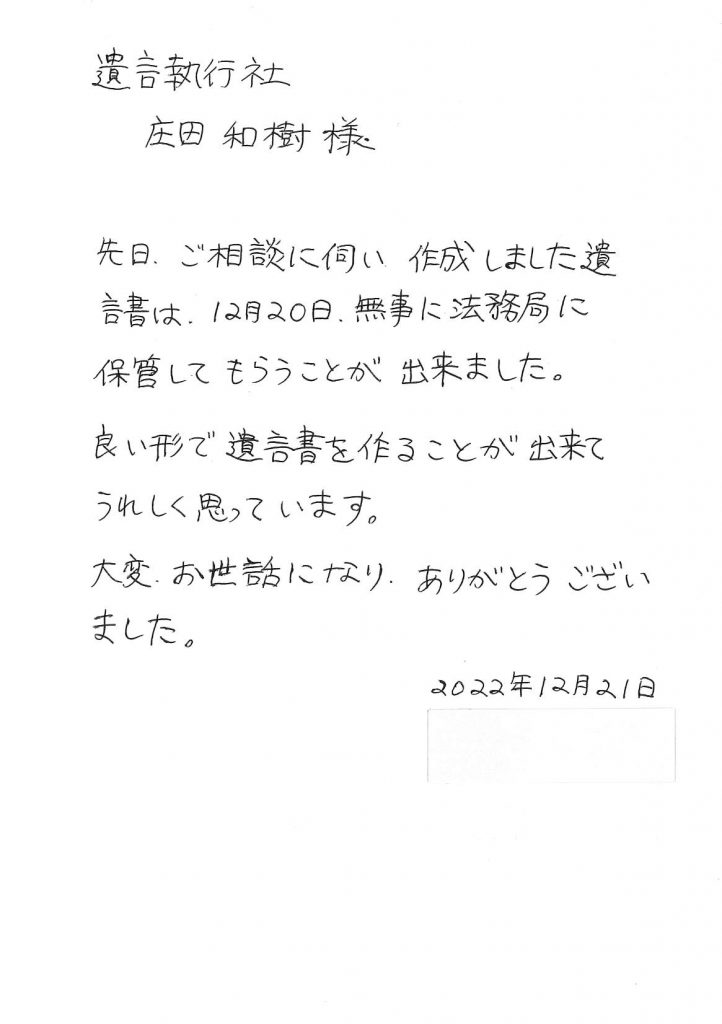 遺言執行社
庄田 和樹 様
先日、ご相談に伺い 作成しました遺
言書は、12月20日、無事に法務局に
保管して もらうことが 出来ました。
良い形で 遺言書を作ることが 出来て
うれしく思って います。
大変、お世話になり、ありがとう ござい
ました。
2022年12月21日